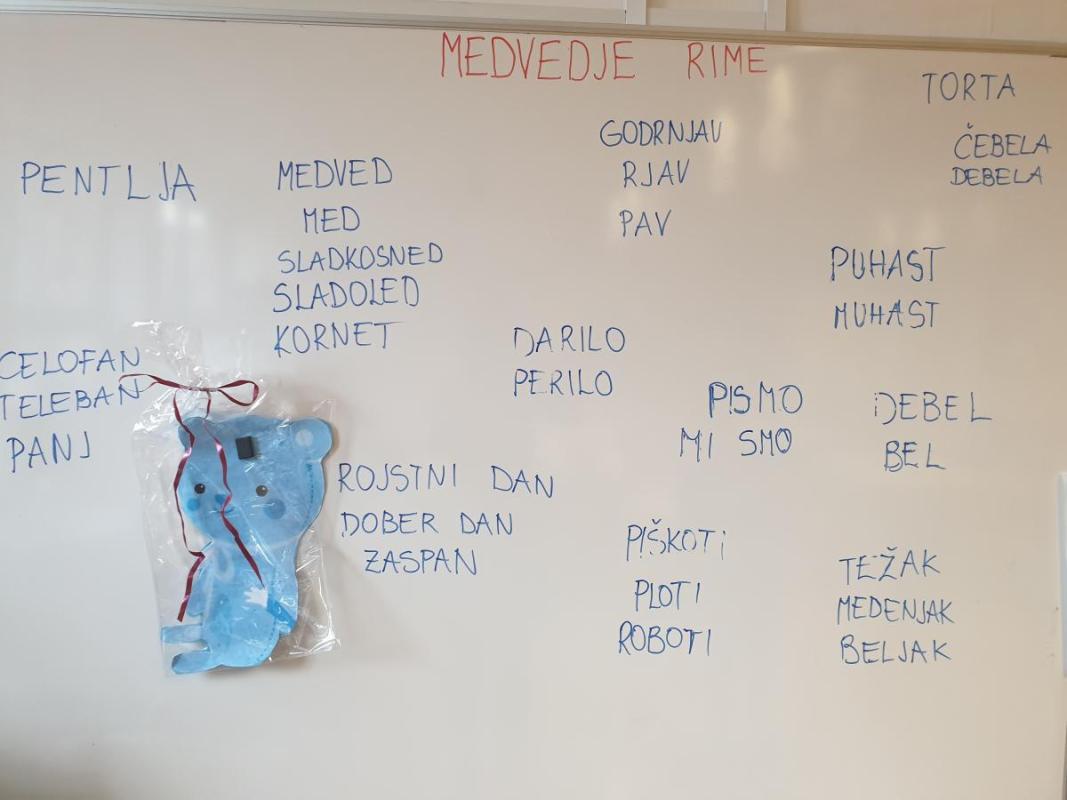 MEDVEDJE RIME
PENTLJA
MEDVED
MED
SLADKOSNED
SLADOLED
KORNET
GODRNJAV
RJAV
PAV
TORTA
ČEBELA
DEBELA
PUHAST
MUHAST
CELOFAN
TELEBAN
PANJ
DARILO
PERILO
PISMO
MI SMO
DEBEL
BEL
ROJSTNI DAN
DOBER DAN
ZASPAN
PIŠKOTI
PLOTI
ROBOTI
TEŽAK
MEDENJAK
BELJAK